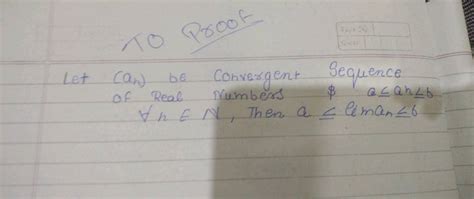 TO Proof
Let (an) be Convergent Sequence
of Real Numbers & a ≤ an ≤ b
∀ n ∈ N, Then a ≤ liman ≤ b